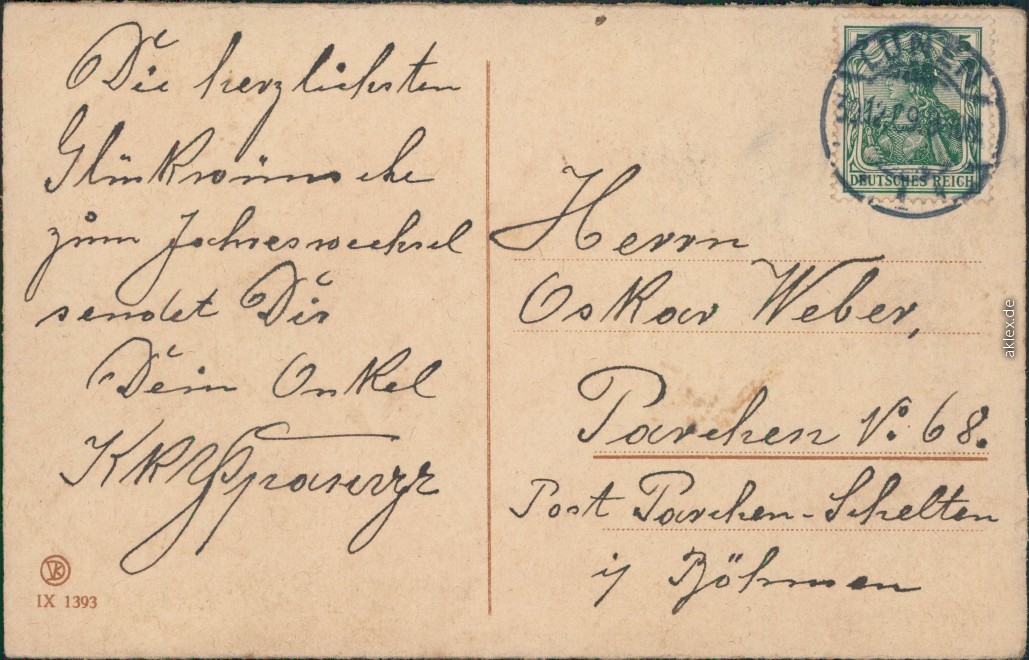 Die herzlichsten
Glückwünsche
zum Jahreswechsel
sendet Dir
Dein Onkel
VK
IX 1393
5 5
LÜNEN
DEUTSCHES REICH
Herrn
Oskar Weber,
Parchen No. 68.
Post Parchen-Schelten
i/ Böhmen
aklex.de